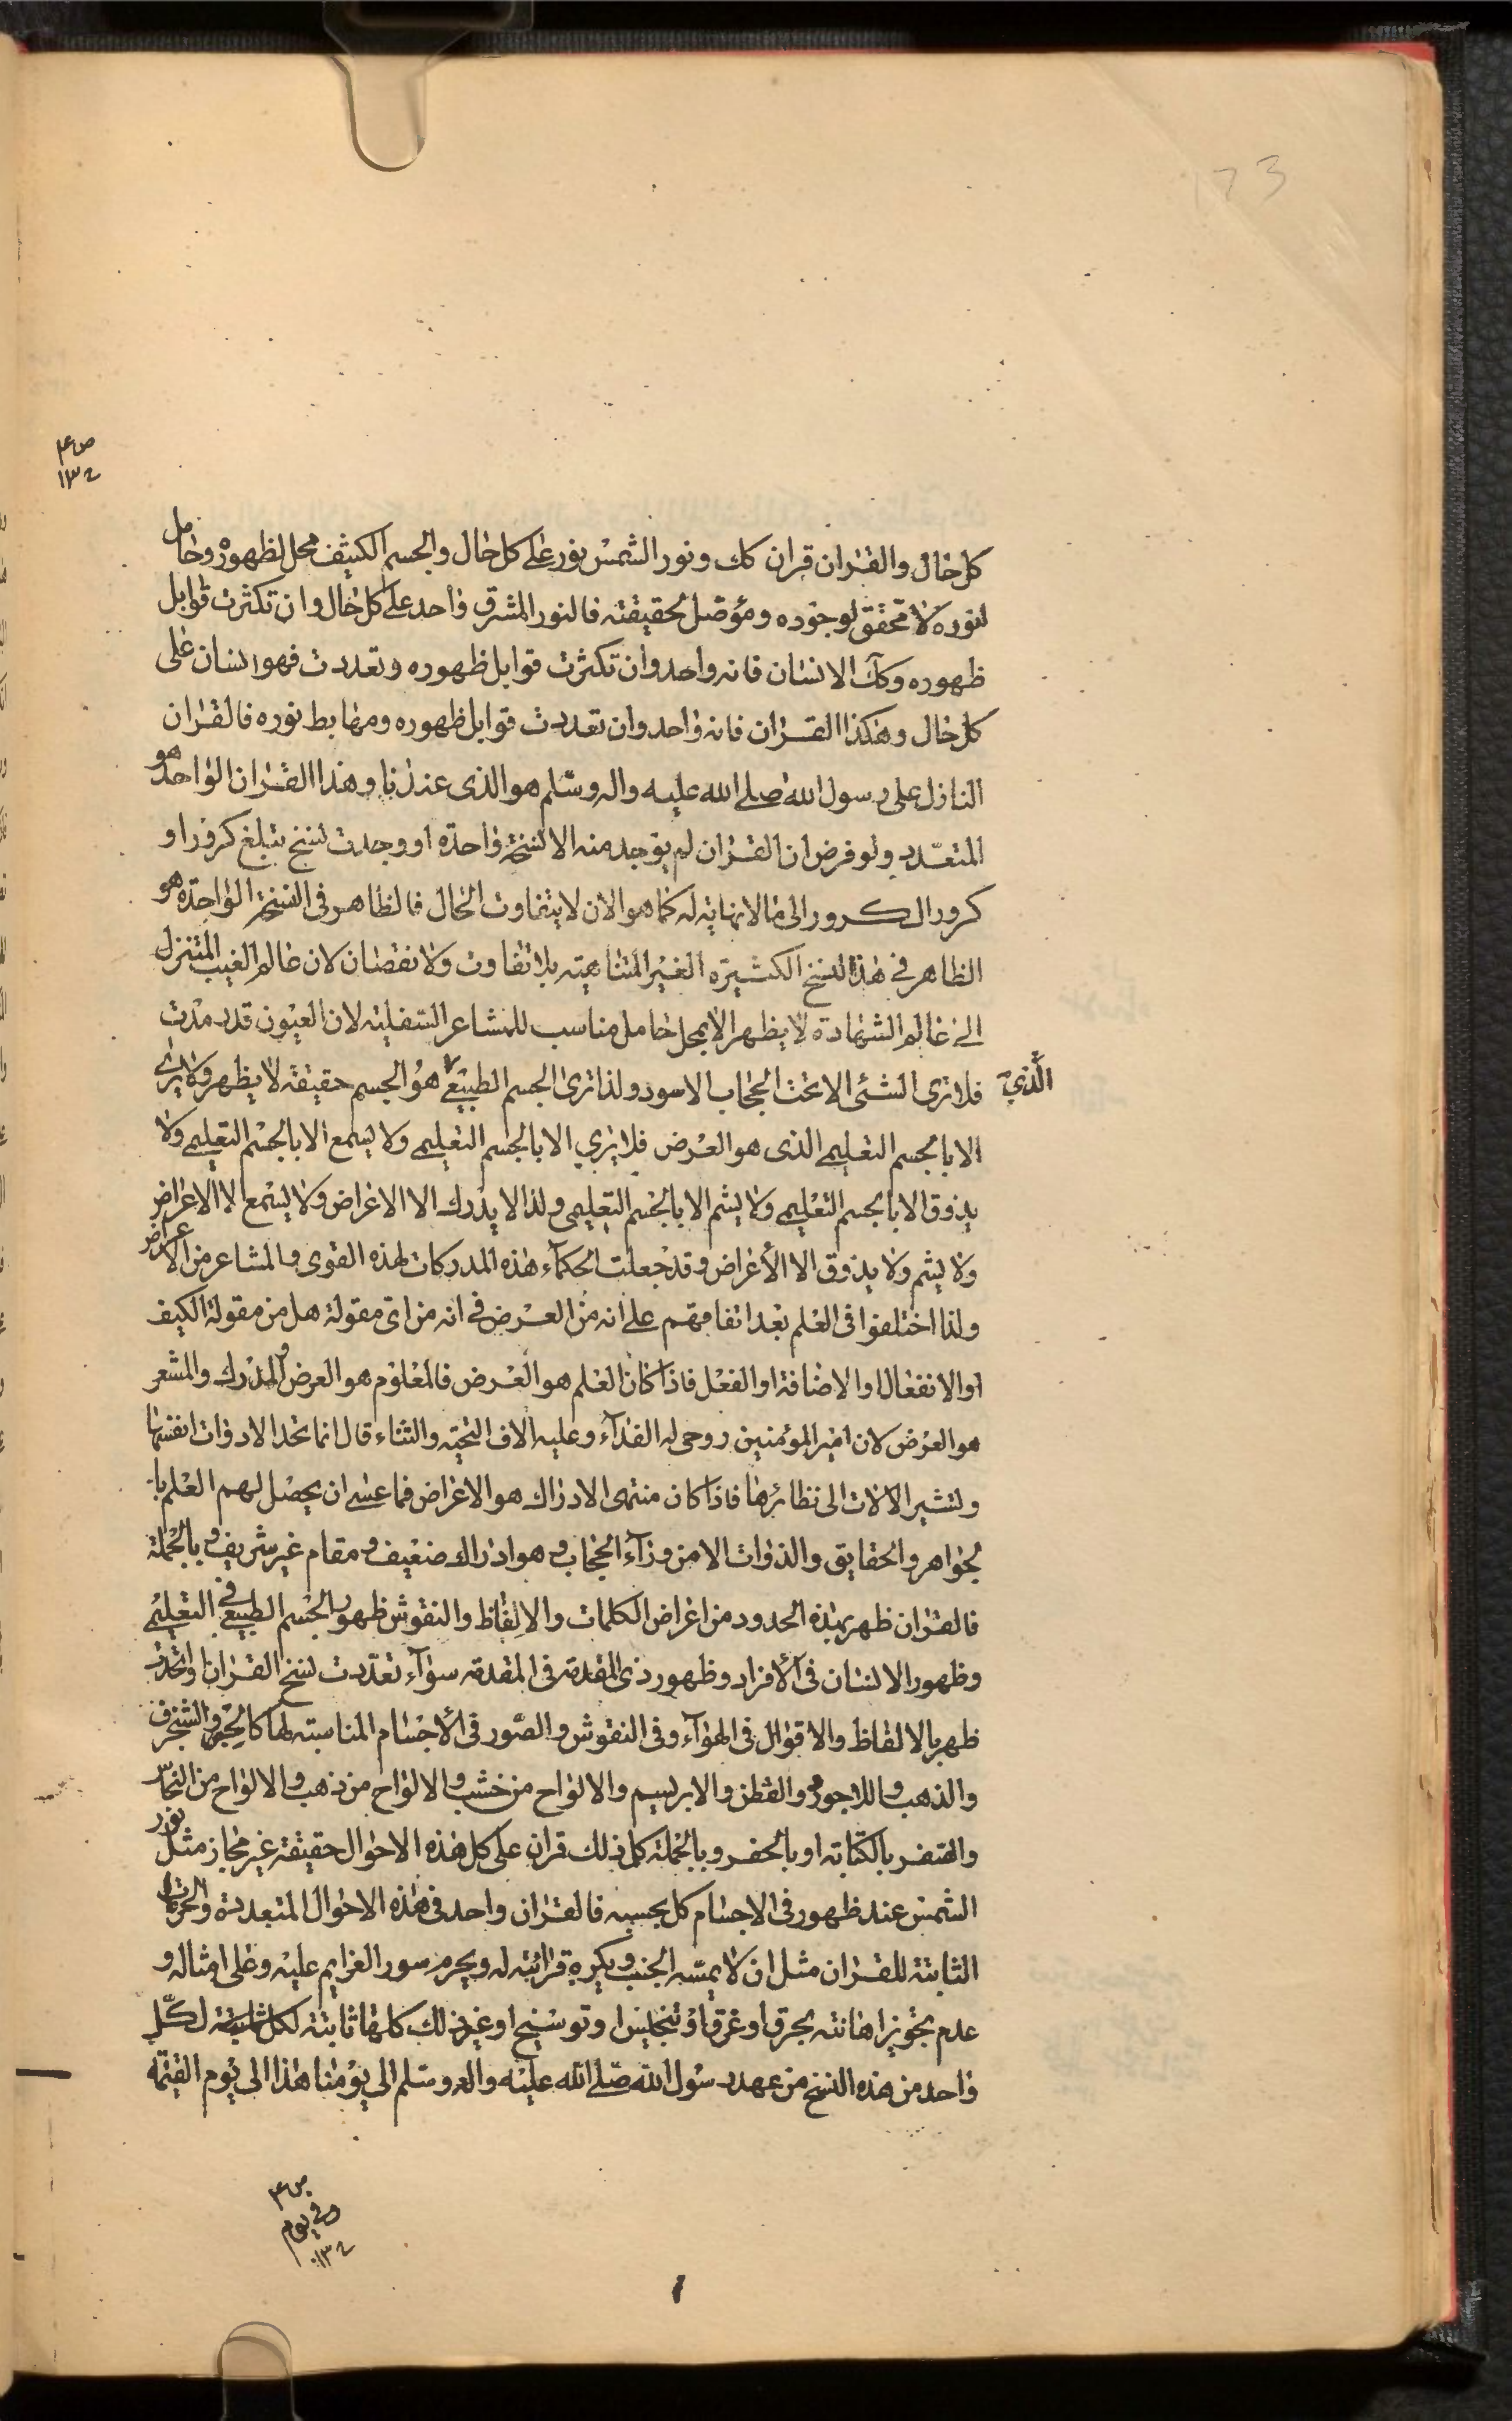 173
ص ع م
١٣٤
كل حال والقران قران كك ونور الشمس نور على كل حال والجسم الكثيف محل لظهوره وحامل
لنوره لا محقق لوجوده ومؤصل لحقيقته فالنور المشرق واحد على كل حال وان تكثرت قوابل
ظهوره وكك الانسان فانه واحد وان تكثرت قوابل ظهوره وتعددت فهو انسان على
كل حال وهكذا القران فانه واحد وان تعددت قوابل ظهوره ومهابط نوره فالقران
النازل على رسول الله صلى الله عليه واله وسلم هو الذى عندنا وهذا القران الواحد هو
المتعدد ولو فرض ان القران لم يوجد منه الا نسخة واحدة او وجدت نسخ تبلغ كرورا و
كرور الكرور الى ما لا نهاية له كما هو الان لا يتفاوت الحال فالظاهر فى النسخة الواحدة هو
الظاهر فى هذه النسخ الكثيرة الغير المتناهية بلا تفاوت ولا نقصان لان عالم الغيب المتنزل
الى عالم الشهادة لا يظهر الا بمحل حامل مناسب للمشاعر السفلية لان العيون قد رمدت
فلا ترى الشئ الا تحت الحجاب الاسود ولذا ترى الجسم الطبيعى هو الجسم حقيقة لا يظهر ولا يرى
الَّذي
الا بالجسم التعليمى الذى هو العرض فلا يرى الا بالجسم التعليمى ولا يسمع الا بالجسم التعليمى ولا
يذوق الا بالجسم التعليمى ولا يشم الا بالجسم التعليمى ولذا لا يدرك الا الاعراض ولا يسمع الا الاعراض
ولا يشم ولا يذوق الا الأعراض وقد جعلت الحكماء هذه المدركات لهذه القوى والمشاعر من الاعراض
ولذا اختلفوا فى العلم بعد اتفاقهم على انه من العرض فى انه من اى مقولة هل من مقولة الكيف
او الانفعال او الاضافة او الفعل فاذا كان العلم هو العرض فالمعلوم هو العرض والمدرك والمشعر
هو العرض لان امير المؤمنين روحى له الفداء وعليه الاف التحية والثناء قال انما تحد الادوات انفسها
وتشير الالات الى نظائرها فاذا كان منتهى الادراك هو الاعراض فما عسى ان يحصل لهم العلم با
لجواهر والحقايق والذوات الا من وراء الحجاب وهو ادراك ضعيف ومقام غير شريف وبالجملة
فالقران ظهر بهذه الحدود من اعراض الكلمات والالفاظ والنقوش ظهور الجسم الطبيعى فى التعليمى
وظهور الانسان فى الأفراد وظهور ذى المقدمة فى المقدمة سواء تعددت نسخ القران او اتحدت
ظهر بالالفاظ والاقوال فى الهواء وفى النقوش والصور فى الأجسام المناسبة لها كالحبر والشنجرف
والذهب واللاجورد والقطن والابريسم والالواح من خشب والالواح من ذهب والالواح من النحاس
والصفر بالكتابة او بالحفر وبالجملة كل ذلك قران على كل هذه الاحوال حقيقة غير مجاز مثل نور
الشمس عند ظهور فى الاجسام كل بحسبه فالقران واحد فى هذه الاحوال المتعددة والحرمات
الثابتة للقران مثل ان لا يمسه الجنب ويكره قرائته له ويحرم سور العزايم عليه وعلى امثاله و
عدم تجويز اهانته بحرق او غرق او تنجيس او توسيخ او غير ذلك كلها ثابتة لكل لكلِّ
واحد من هذه النسخ من عهد رسول الله صلى الله عليه واله وسلم الى يومنا هذا الى يوم القيمة
ص ع م
فى يوم
١٣٤
١